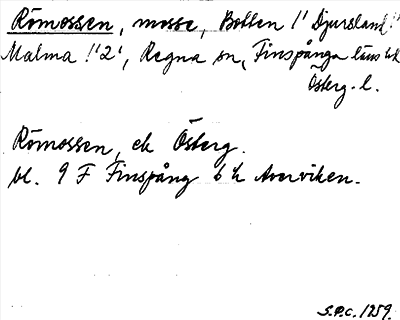 Römossen, mosse, Botten 1' Djursland !'
Malma !'2', Regna sn, Finspånga läns hd
Österg. l.
Römossen, ek Österg.
bl. 9 F Finspång 6 h Averviken.
S.P.C. 1959.